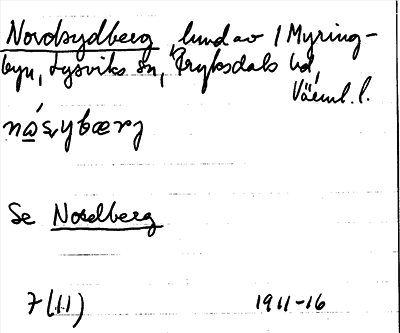 Nordsydberg lund av 1 Myring-
byn, Lysviks sn, Fryksdals hd,
Värml. l.
nǻsybærg
Se Nordberg
7(11) 1911-16